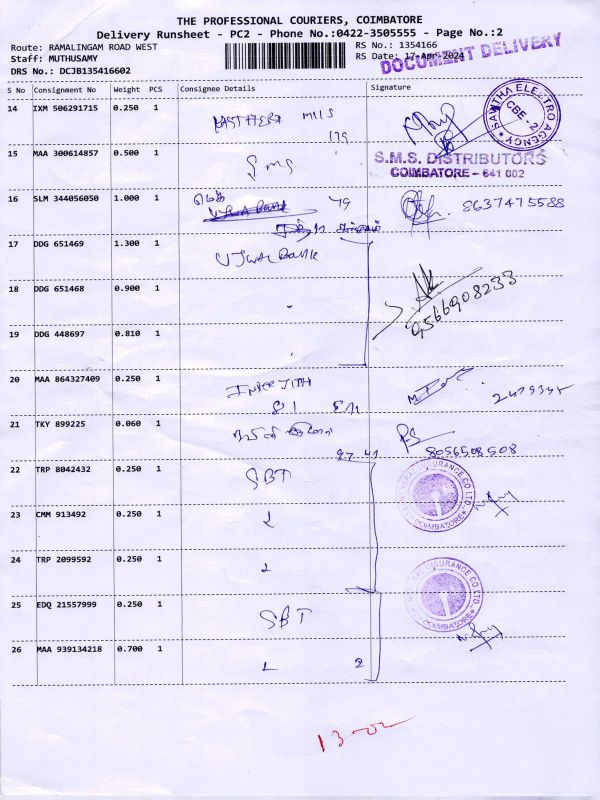 THE PROFESSIONAL COURIERS, COIMBATORE
Delivery Runsheet - PC2 - Phone No.:0422-3505555 - Page No.:2
Route: RAMALINGAM ROAD WEST
RS No.: 1354166
Staff: MUTHUSAMY
RS Date: 17-Apr-2024
DOCUMENT DELIVERY
DRS No.: DCJB135416602
S No Consignment No Weight PCS Consignee Details Signature
14 IXM 506291715 0.250 1
SAWITHA ELECTRO AGENCY
CBE - 2
15 MAA 300614857 0.500 1 SMS
S.M.S. DISTRIBUTORS
COIMBATORE - 641 002
16 SLM 344056050 1.000 1 8637475588
17 DDG 651469 1.300 1 Ujwal Bank
18 DDG 651468 0.900 1
9566908233
19 DDG 448697 0.810 1
20 MAA 864327409 0.250 1
21 TKY 899225 0.060 1
8056508508
22 TRP 8042432 0.250 1 SBT
INSURANCE CO LTD.
COIMBATORE
23 CMM 913492 0.250 1
24 TRP 2099592 0.250 1
25 EDQ 21557999 0.250 1 SBT
INSURANCE CO LTD.
COIMBATORE
26 MAA 939134218 0.700 1
13-02